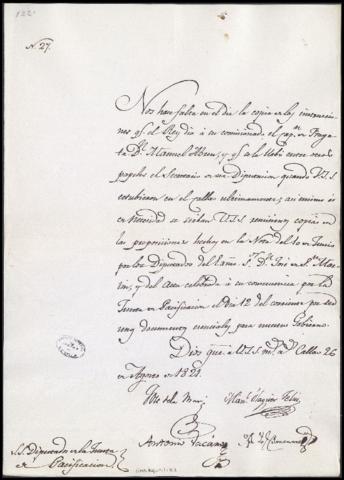 N. 27.
Nos hace falta en el dia la copia de las instruccio-
nes qe. el Rey dio á su comisionado el capn. de Fraga-
ta Dn. Manuel Abreu, y qe. se la
papeles el Secretario de esa Diputacion quando V.S.S.
estubieron en el Callao ultimamente; asi mismo es
de necesidad se sirban V.S.S. remitirnos copias de
las proposiciones hechas en la Nota del 10 de Junio
por los Diputados del Exmo Sr. Dn. José de Sn. Mar-
tin, y del Acta celebrada á su consecuencia por la
Junta de Pacificacion el dia 12 del corriente por ser
documentos esenciales para nuestro Gobierno.
Dios gue. á V.S.S. ms. as. Callao 26
de Agosto de 1821.
Antonio Vacaro
S.S. Diputados de la Junta
de Pacificacion